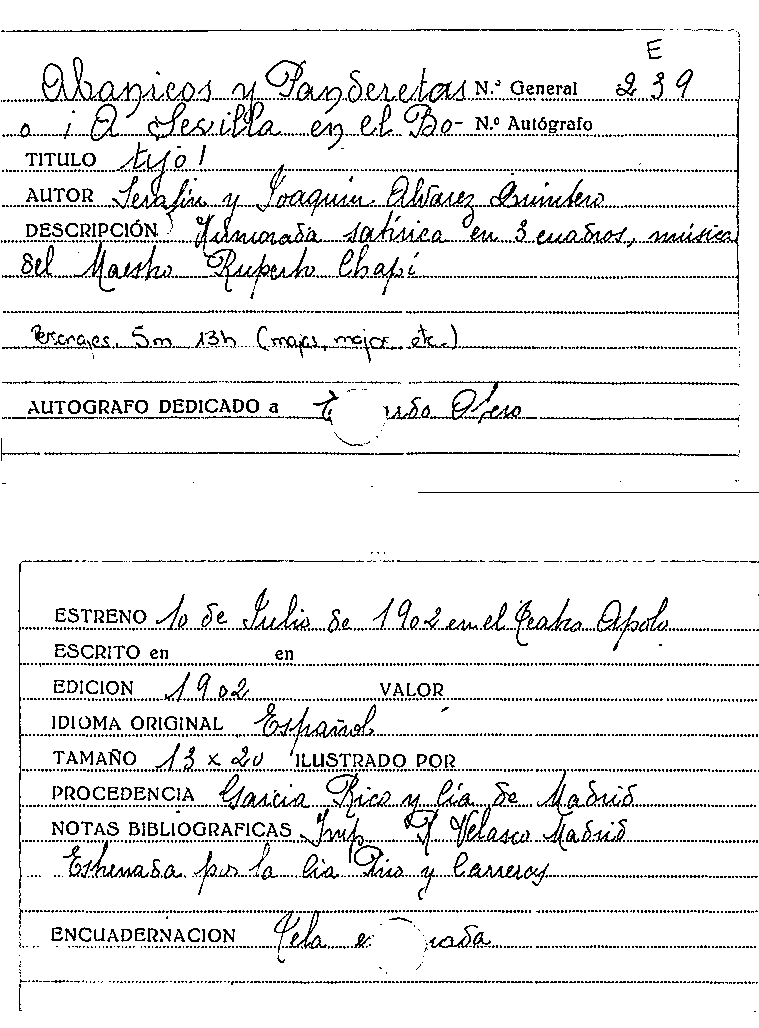 E
Abanicos y Panderetas N.º General 239
o ¡A Sevilla en el Bo- N.º Autógrafo
TITULO tijo!
AUTOR Serafín y Joaquín Alvarez Quintero
DESCRIPCIÓN Humorada satírica en 3 cuadros, música
del Maestro Ruperto Chapí
Personajes. 5m 13h (majas, majos, etc.)
AUTOGRAFO DEDICADO a Otero
ESTRENO 10 de Julio de 1902 en el Teatro Apolo
ESCRITO en en
EDICION 1902 VALOR
IDIOMA ORIGINAL Español
TAMAÑO 13 x 20 ILUSTRADO POR
PROCEDENCIA Garcia Rico y Cía de Madrid
NOTAS BIBLIOGRAFICAS Imp R Velasco Madrid
Estrenada por la Cia Pino y Carreras
ENCUADERNACION Tela